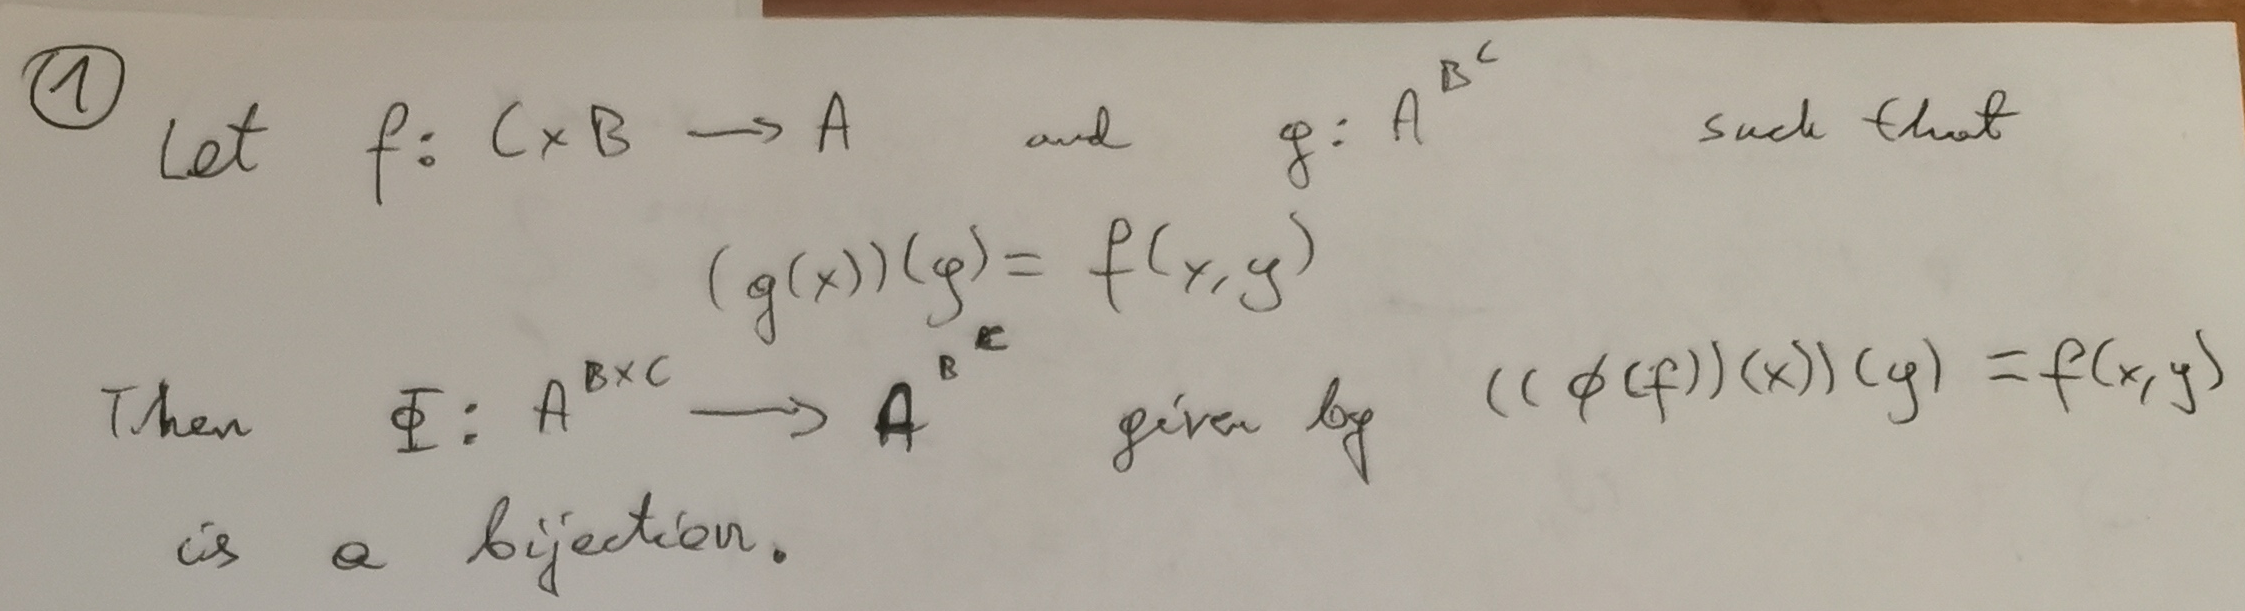 ① Let f: C×B → A and g: A^{B^C} such that
(g(x))(y) = f(x,y)
Then Φ: A^{B×C} → A^{B^C} given by ((ϕ(f))(x))(y) = f(x,y)
is a bijection.